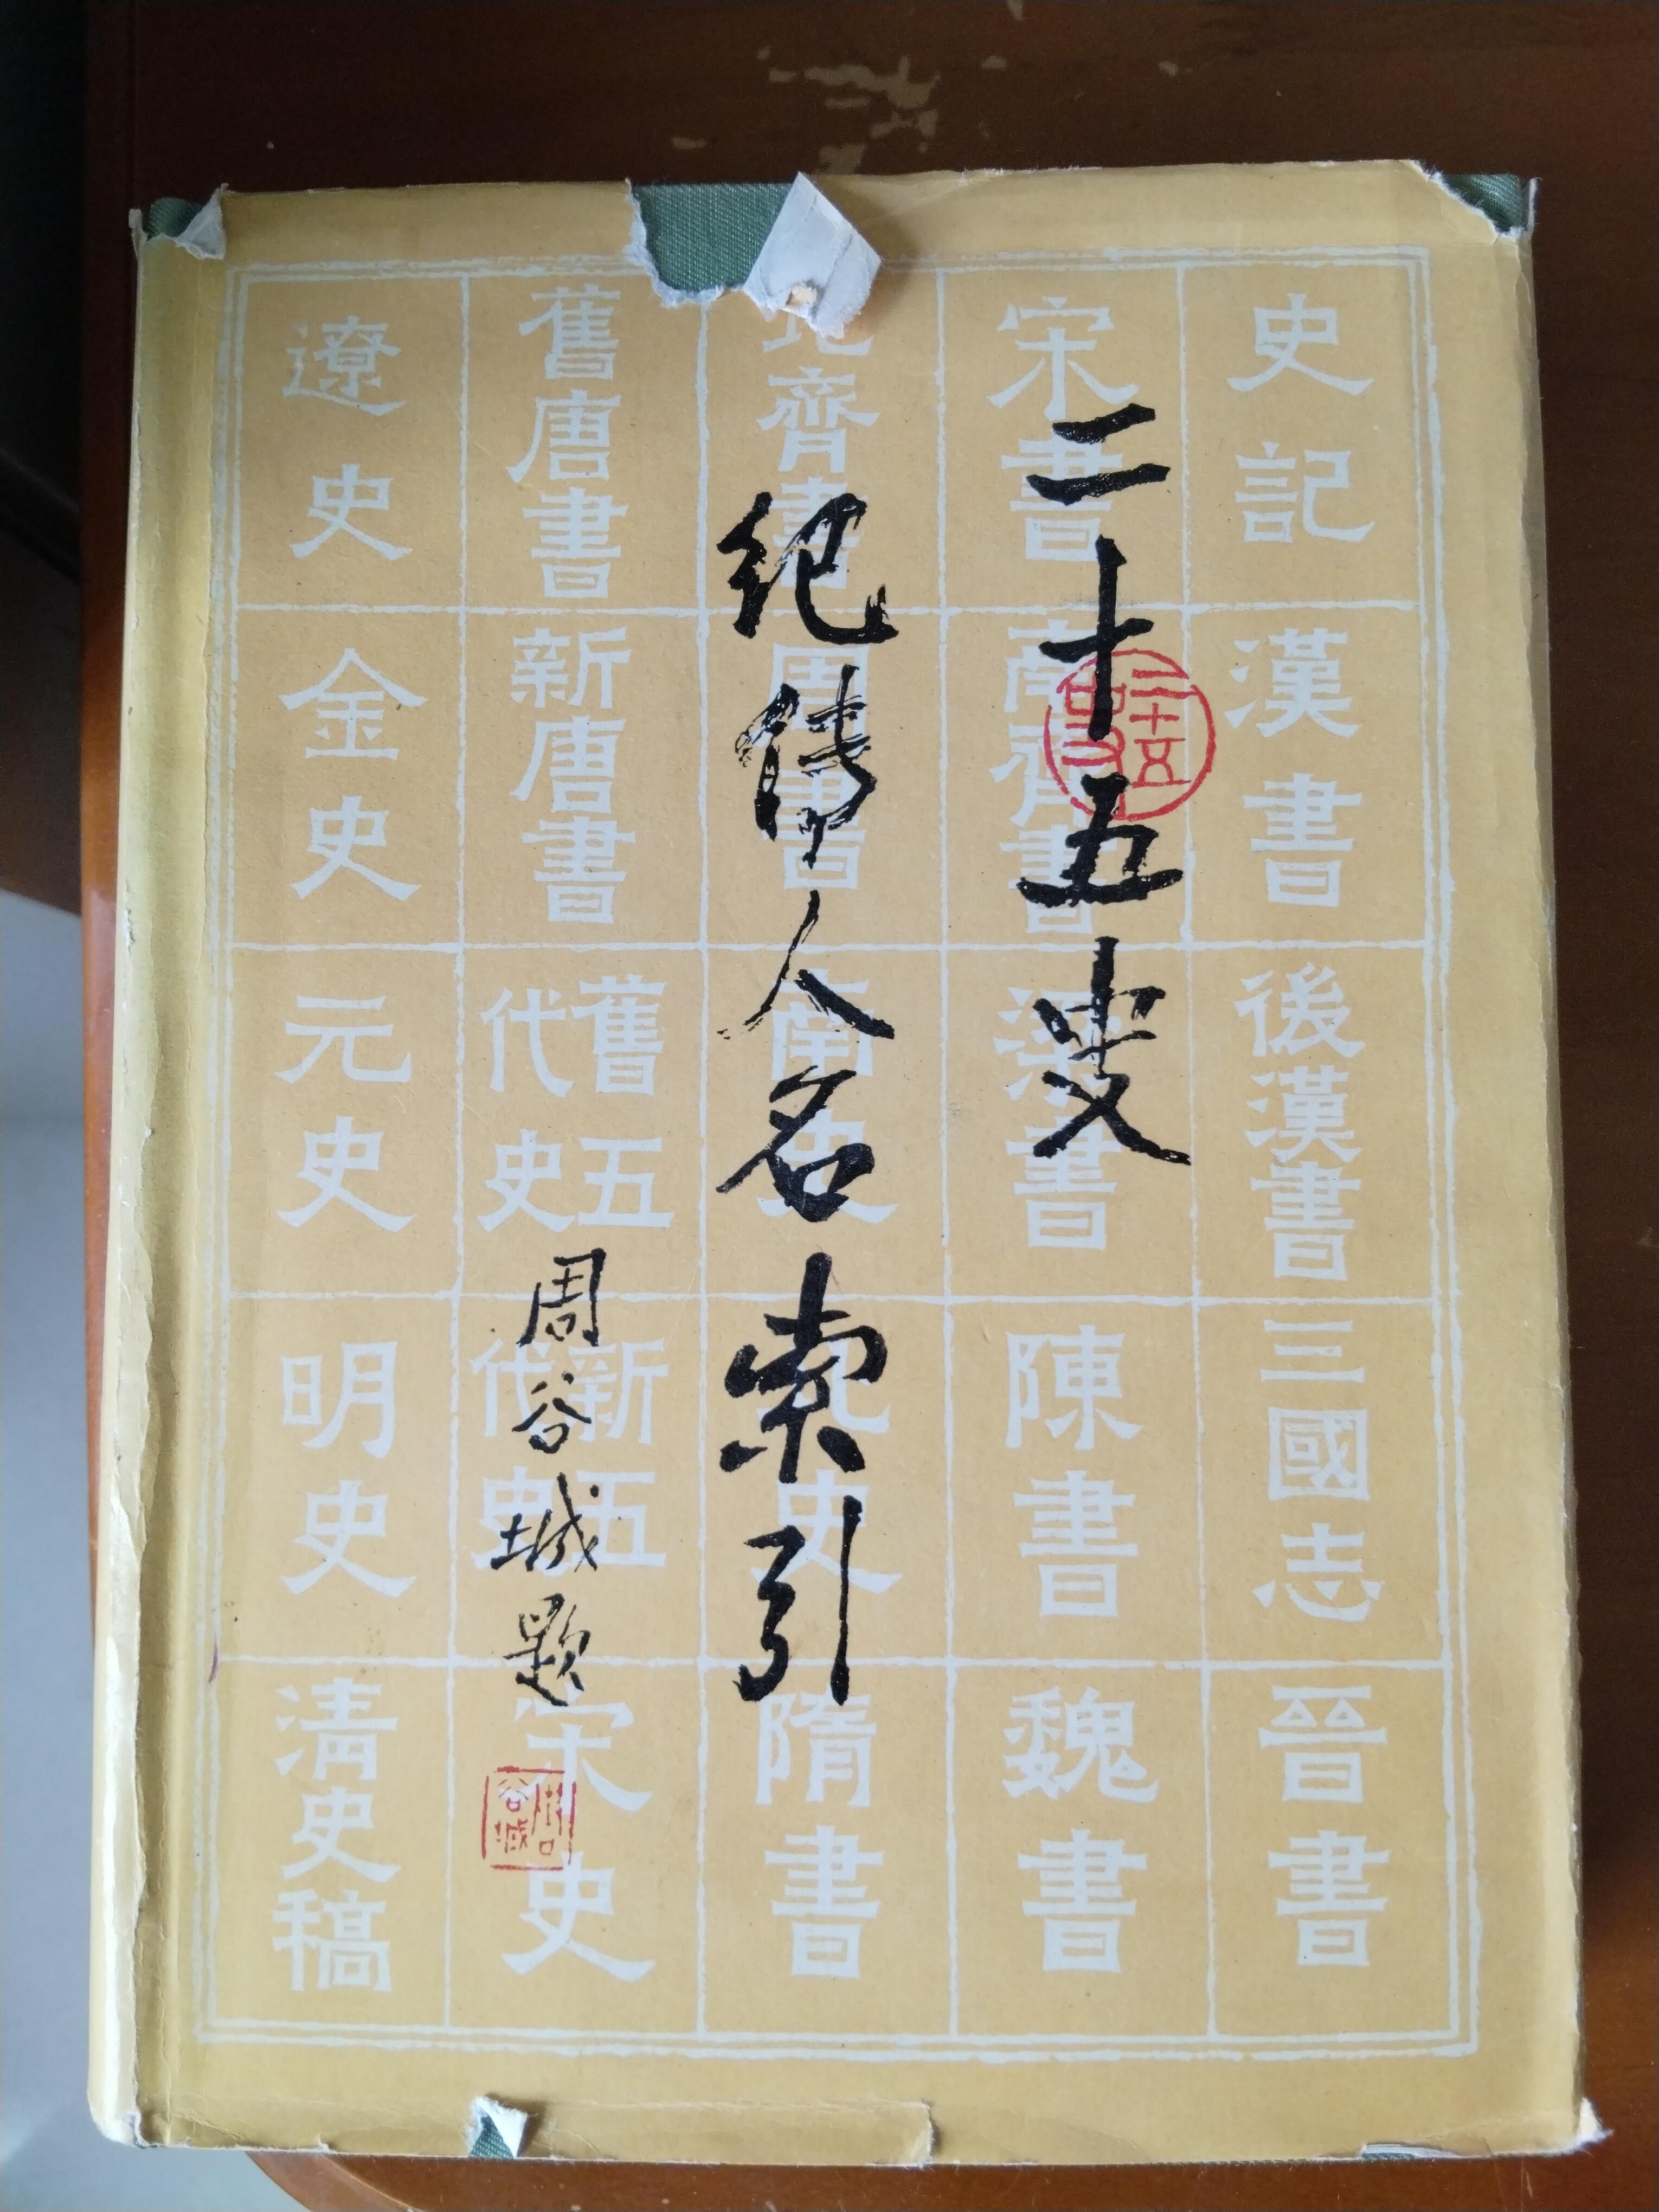 二十五史
紀傳人名索引
周谷城題
二十五史
周谷城
史記
漢書
後漢書
三國志
晉書
宋書
南齊書
梁書
陳書
魏書
北齊書
周書
南史
北史
隋書
舊唐書
新唐書
舊五代史
新五代史
宋史
遼史
金史
元史
明史
清史稿